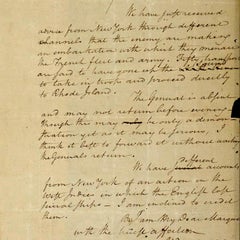 We have just received
advice from New York through different
channels that the enemy are making
an embarkation with which they menace
the French fleet and army. Fifty transports
are said to have gone up the
to take in troops and proceed directly
to Rhode Island.
The General is absent
and may not return before evening.
though this may be only a demon-
stration yet as it may be serious, I
think it best to forward it without waiting
the Generals return.
We have different accounts
from New York of an action in the
West Indies in which the English lost
several ships. I am inclined to credit
them.
I am My Dear Marquis
with the